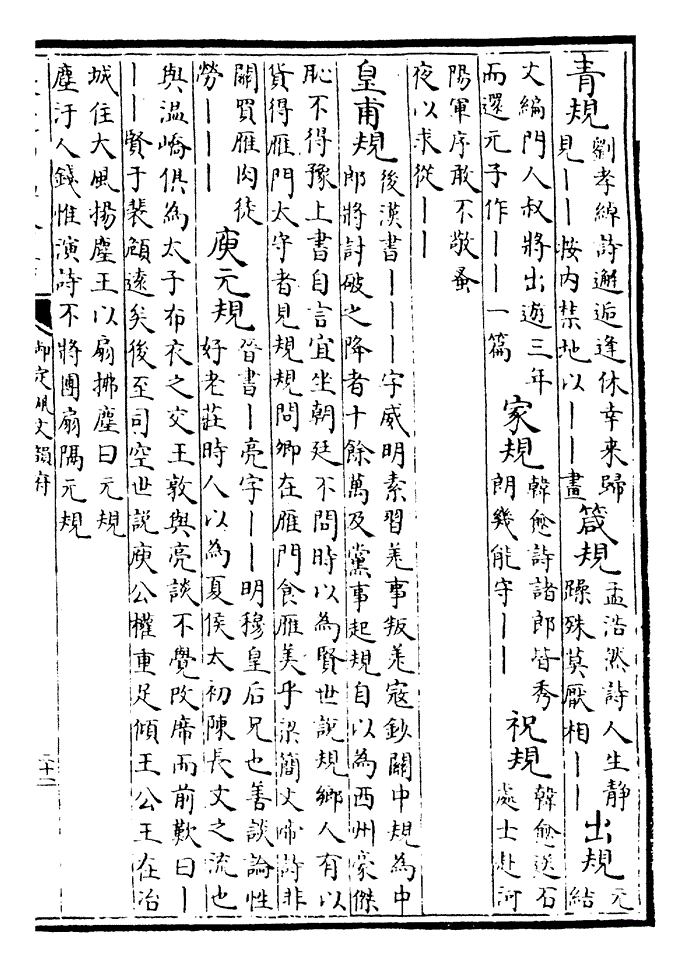 青規 劉孝綽詩邂逅逢休幸來歸
見——按内禁地以——畫
箴規 孟浩然詩人生靜
躁殊莫厭相——
出規 元
結
文編門人叔將出遊三年
而還元子作——一篇
家規 韓愈詩諸郎皆秀
朗幾能守——
祝規 韓愈送石
處士赴河
陽軍序敢不敬蚤
夜以求從——
皇甫規 後漢書———字威明素習羌事叛羌寇鈔關中規為中
郎將討破之降者十餘萬及黨事起規自以為西州豪傑
恥不得豫上書自言宜坐朝廷不問時以為賢世說規鄉人有以
貨得雁門太守者見規規問卿在雁門食雁美乎梁簡文帝詩非
關買雁肉徒
勞———
庾元規 晉書—亮字——明穆皇后兄也善談論性
好老莊時人以為夏侯太初陳長文之流也
與溫嶠俱為太子布衣之交王敦與亮談不覺改席而前歎曰—
——賢于裴頠遠矣後至司空世說庾公權重足傾王公王在冶
城住大風揚塵王以扇拂塵曰元規
塵汙人錢惟演詩不將團扇隔元規
御定佩文韻府
二十二